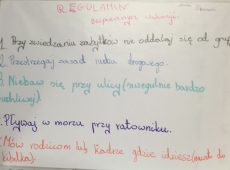 REGULAMIN
bezpiecznych wakacji
1. Przy zwiedzaniu zabytków nie oddalaj się od gru
2. Przestrzegaj zasad ruchu drogowego.
3. Nie baw się przy ulicy (szczególnie bardzo
ruchliwej)
Pływaj w morzu przy ratowniku.
Mów rodzicom lub kadrze gdzie idziesz (